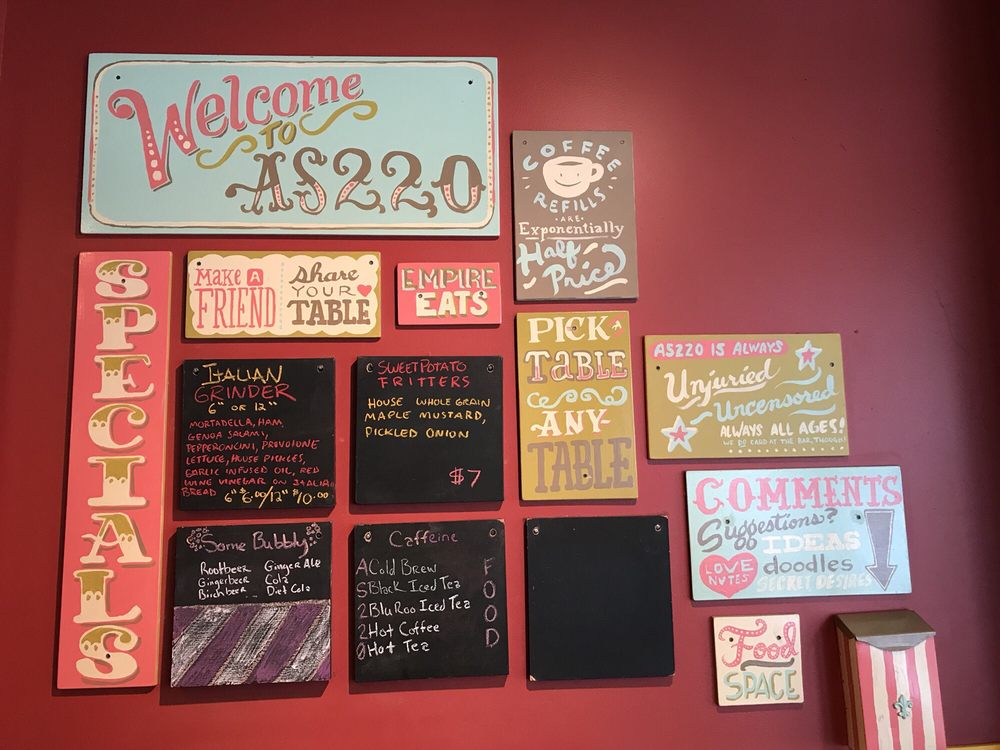 Welcome
TO
AS220
COFFEE
REFILLS
·ARE·
Exponentially
Half
Price
SPECIALS
Make A
FRIEND
Share
YOUR
TABLE
EMPIRE
EATS
PICK
TABLE
ANY-
TABLE
AS220 IS ALWAYS
Unjuried
Uncensored
ALWAYS ALL AGES!
WE DO CARD AT THE BAR, THOUGH!
ITALIAN
GRINDER
6" OR 12"
MORTADELLA, HAM,
GENOA SALAMI,
PEPPERONCINI, PROVOLONE
LETTUCE, HOUSE PICKLES,
GARLIC INFUSED OIL, RED
WINE VINEGAR ON ITALIAN
BREAD 6" $6.00/12" $10.00
SWEET POTATO
FRITTERS
HOUSE WHOLE GRAIN
MAPLE MUSTARD,
PICKLED ONION
$7
COMMENTS
Suggestions?
IDEAS
LOVE
NOTES
doodles
SECRET DESIRES
Some Bubbly
Rootbeer Ginger Ale
Gingerbeer Cola
Birchbeer Diet Cola
Caffeine
A Cold Brew F
S Black Iced Tea O
2 Blu Roo Iced Tea O
2 Hot Coffee D
0 Hot Tea
Food
SPACE